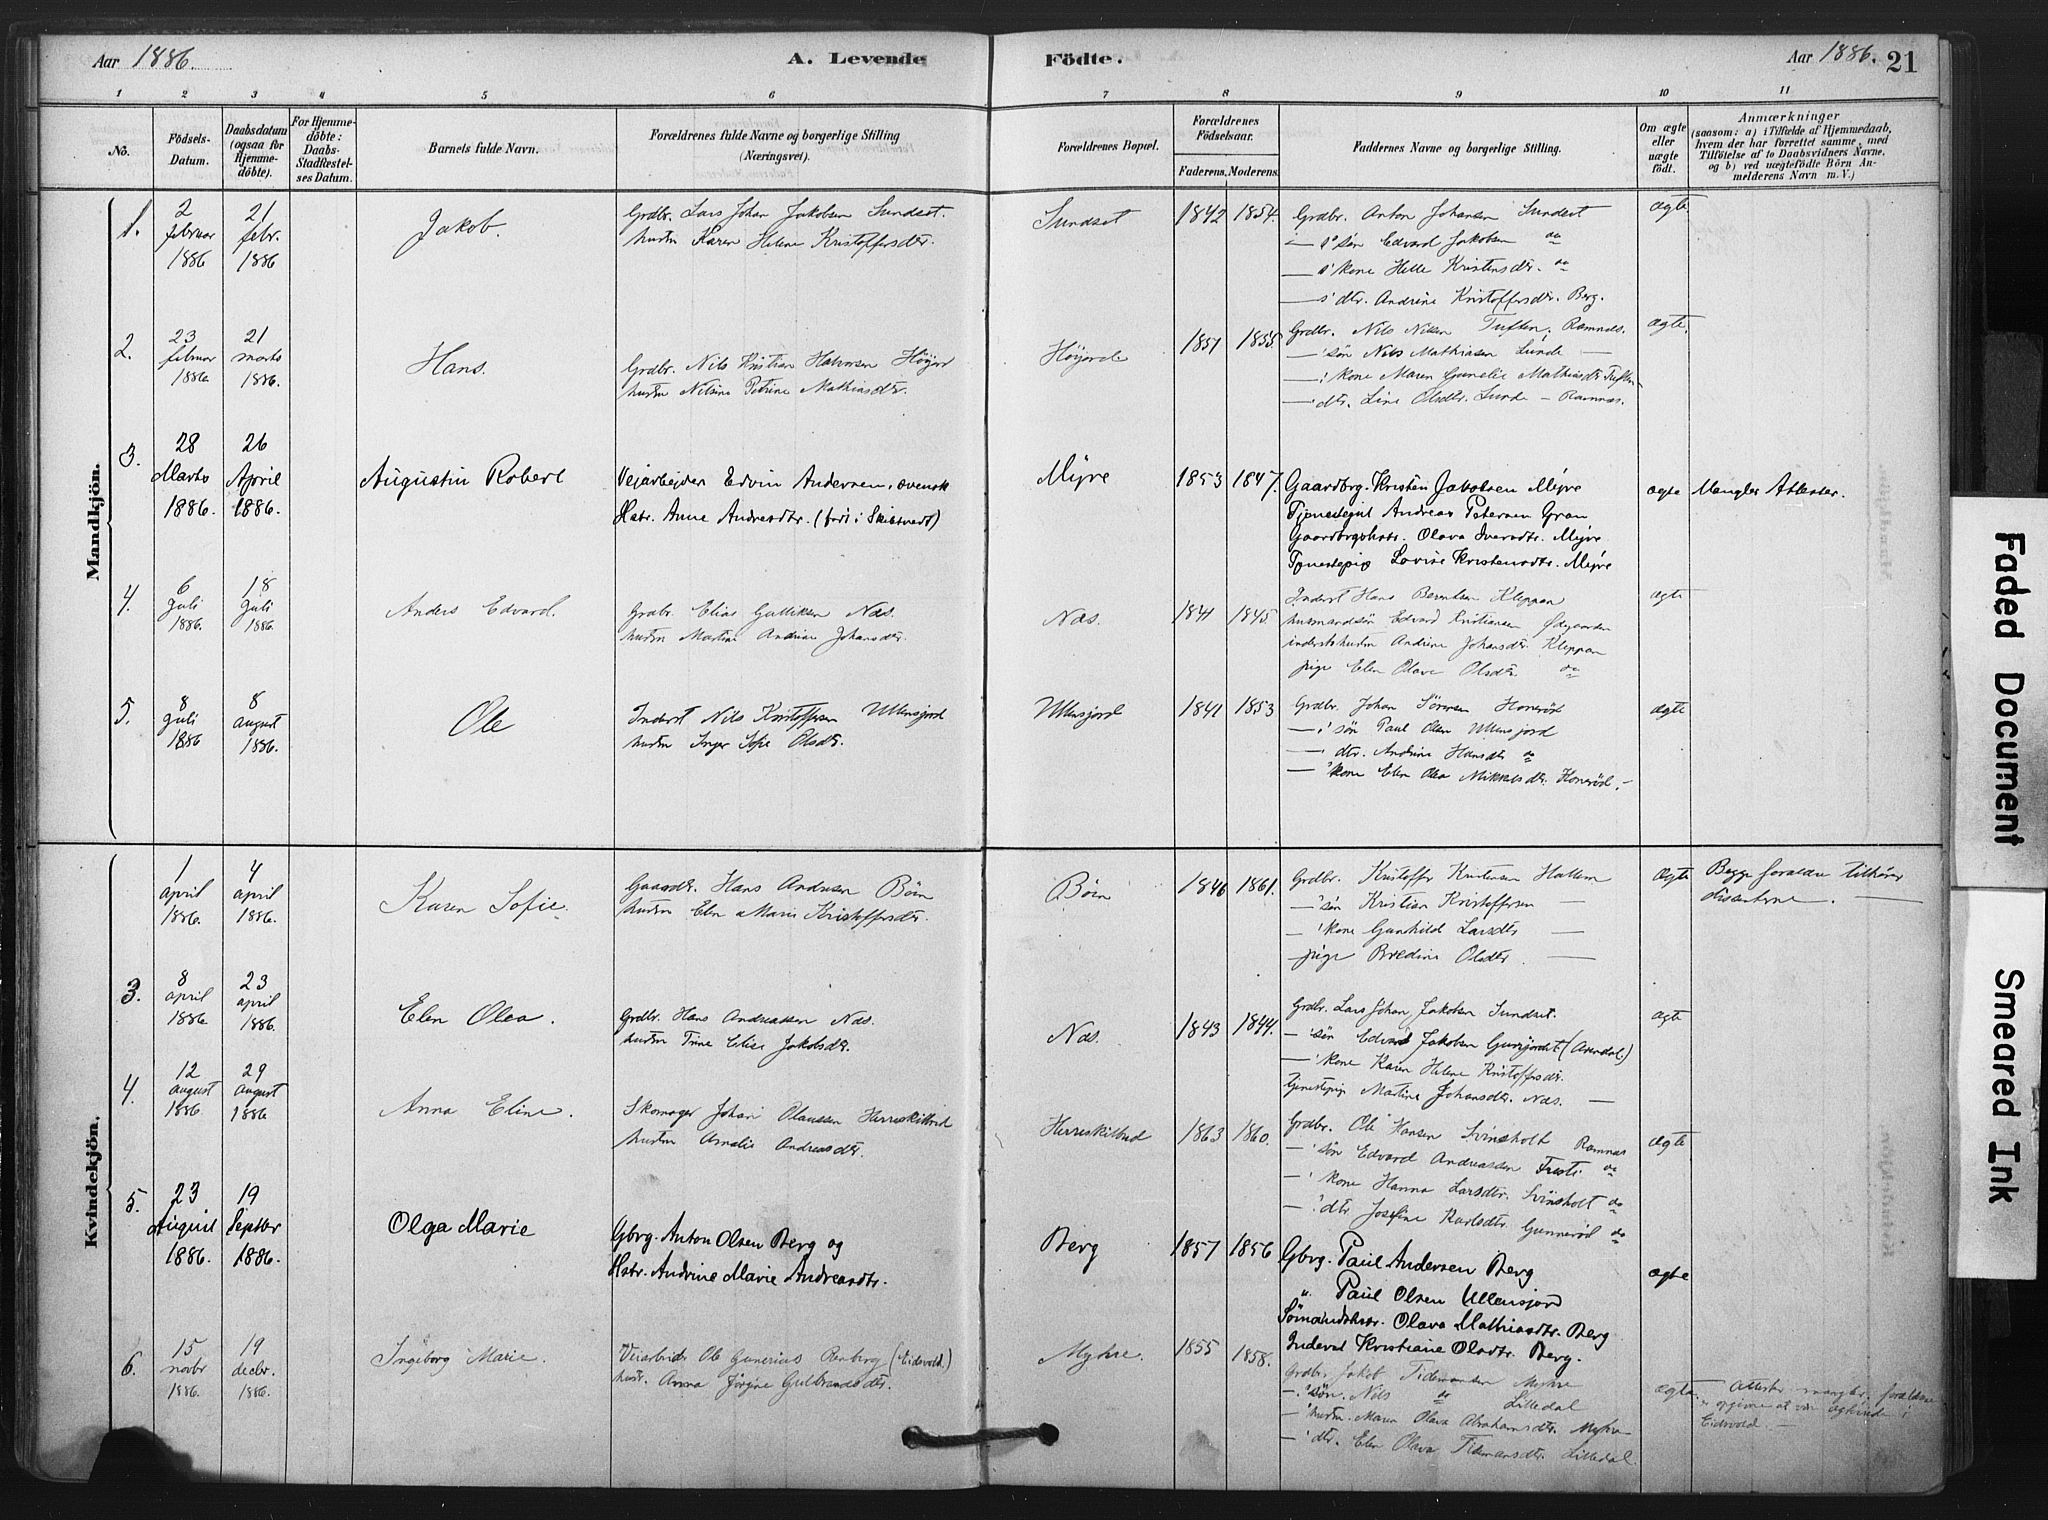 Aar 1886. A. Levende Födte. Aar 1886. 21
1 2 3 4 5 6 7 8 9 10 11
No.
Födsels-Datum.
Daabsdatum (ogsaa for Hjemmedöbte).
For Hjemmedöbte: Daabs-Stadfæstelses Datum.
Barnets fulde Navn.
Forældrenes fulde Navne og borgerlige Stilling (Næringsvei).
Forældrenes Bopæl.
Forældrenes Födselsaar.
Faderens. Moderens.
Faddernes Navne og borgerlige Stilling.
Om ægte eller uægte födt.
Anmærkninger (saasom: a) i Tilfælde af Hjemmedaab, hvem der har forrettet samme, med Tilföielse af to Daabsvidners Navne, og b) ved uægtefödte Börn Anmelderens Navn m. V.)
Mandkjön.
1. 2 februar 1886 21 febr. 1886
Jakob.
Grdbr. Lars Johan Jakobsen Sundset.
hustru Karen Helene Kristoffersdtr.
Sundset 1842 1854.
Grdbr. Anton Johansen Sundset
— s' søn Edvard Jakobsen do
— s' kone Helle Kristensdtr. do
— s' dtr. Andrine Kristoffersdtr. Berg.
ægte.
2. 23 februar 1886. 21 marts 1886.
Hans.
Grdbr. Nils Kristian Halvorsen Höijord
hustru Nilsine Petrine Mathiasdtr.
Höijorde 1851 1855.
Grdbr. Nils Nilsen Tuften. Ramnæs.
— ' søn Nils Mathiasen Sunde —
— ' kone Maren Gunelie Mathiasdtr Tuften —
— ' dtr. Line Olsdtr. Sunde — Ramnæs.
ægte.
3. 28 Marts 1886. 26 April 1886.
Augustin Robert
Vejarbejder Edvin Andersen, svensk
Hstr. Anne Andreasdtr. (født i Skibtvedt)
Mÿre 1853 1847.
Gaardbrg. Kristen Jakobsen Mÿre
Tjenestegut Andreas Petersen Gran
Gaardbrgshstr. Olava Iversdtr. Mÿre
Tjenestepige Lovise Kristensdtr. Mÿre
ægte Mangler Attester.
4. 6 Juli 1886. 18 Juli 1886.
Anders Edvard.
Grdbr. Elias Gulliksen Næs.
hustru Martine Andrine Johansdtr.
Næs. 1841 1845
Inderst Hans Berntsen Kleppan
husmandssøn Edvard Kristiansen Ødegaarden
indersthustru Andrine Johansdtr. Kleppan
pige Elen Olave Olsdtr do
ægte
5. 8 Juli 1886 8 august 1886.
Ole
Inderst Nils Kristoffersen Ullensjord
hustru Inger Sofie Olsdtr.
Ullensjord 1841 1853
Grdbr. Johan Sörensen Honeröd
— ' søn Paul Olsen Ullensjord
— ' dtr. Andrine Hansdtr do
— ' kone Elen Olea Mikkelsdtr. Honeröd. —
ægte
Kvindekjön.
1 april 1886. 4 april 1886.
Karen Sofie.
Gaardbr. Hans Andersen Böen
hustru Elen Marie Kristoffersdtr.
Böen 1846 1861.
Grdbr. Kristoffer Kristensen Hallem
— ' søn Kristian Kristoffersen —
— ' kone Gunhild Larsdtr —
pige Bredine Olsdtr. —
ægte Begge forældre tilhører
dissenterne. —
3. 8 april 1886 23 april 1886.
Elen Olea.
Grdbr. Hans Andreassen Næs.
hustru Trine Elise Jakobsdtr.
Næs. 1843 1844.
Grdbr. Lars Johan Jakobsen Sundset.
— ' søn Edvard Jakobsen (Arendal)
— ' kone Karen Helene Kristoffersdtr.
Tjenestepige Martine Johansdtr. Næs. —
ægte
4. 12 august 1886. 29 august 1886
Anna Eline.
Skomager Johan Olaussen Herreskilbred
hustru Amalie Andreasdtr.
Herreskilbred 1863 1860.
Grdbr. Ole Hansen Svinsholt Ramnæs
— ' søn Edvard Andreassen Fresti do
— ' kone Hanna Larsdtr. Svinsholt do
— ' dtr Josefine Karlsdtr. Gunneröd do
ægte
5. 23 August 1886. 19 Septbr 1886.
Olga Marie
Gbrg. Anton Olsen Berg og
Hstr. Andrine Marie Andreasdtr.
Berg 1857 1856
Gbrg. Paul Andersen Berg
" Paul Olsen Ullensjord
Sömandshstr. Olava Mathiasdtr. Berg
Inderst Kristiane Olsdtr. Berg.
ægte
6. 15 novbr 1886. 19 decbr. 1886.
Ingeborg Marie.
Veiarbeider Ole Gunerius Renberg (Eidsvold.)
hustr. Anna Jørgine Gulbrandsdtr.
Myhre. 1855 1858.
Grdbr. Jakob Tidemansen Myhre
— ' søn. Nils do Lilledal
— ' hustru. Maren Olava Abrahamsdtr. Myhre
— ' dtr. Elen Olava Tidemansdtr. Lilledal.
ægte. Attester mangler, forældrene
opgive at være ægteviede i
Eidsvold. —
Faded Document
Smeared Ink